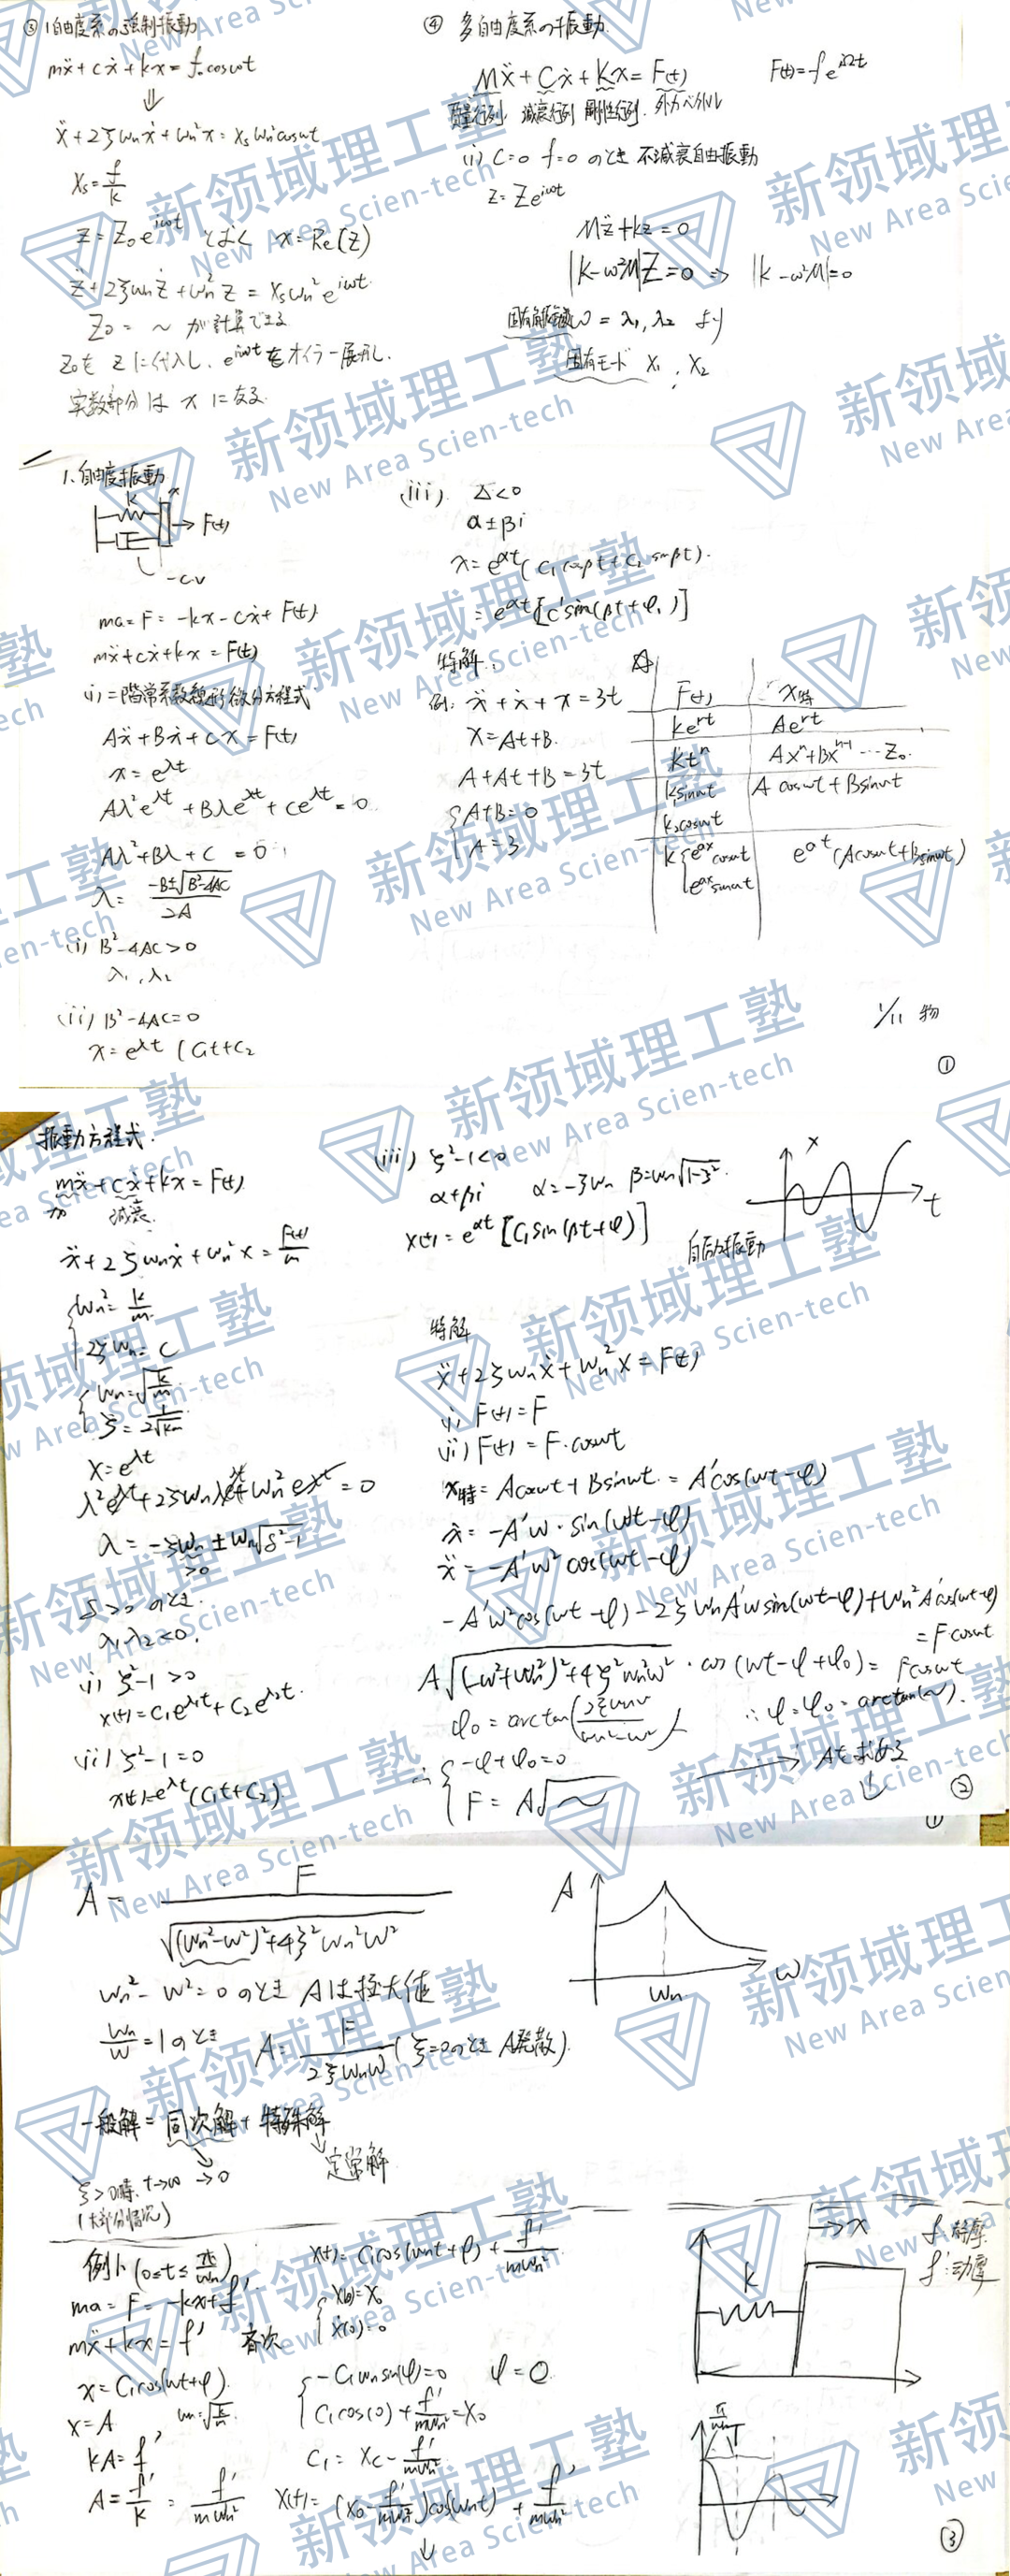 ③ 1自由度系の強制振動
mẍ + cẋ + kx = f₀cosωt
⇓
ẍ + 2ζωnẋ + ωn²x = Xsωn²cosωt
Xs = f/k
z = Z₀e^{iωt} とおく x = Re(z)
z̈ + 2ζωnż + ωn²z = Xsωn²e^{iωt}
Z₀ = ～ が計算できる
Z₀を zに代入し、e^{iωt}をオイラー展開し、
実数部分は xになる.
④ 多自由度系の振動.
Mẍ + Cẋ + Kx = F(t)
F(t) = fe^{iΩt}
質量行列 減衰行列 剛性行列. 外力ベクトル
(i) C=0 f=0 のとき 不減衰自由振動
z = Ze^{iωt}
Mz̈ + kz = 0
|K-ω²M|Z = 0 ⇒ |K-ω²M| = 0
ω = λ₁, λ₂ より
固有モード X₁, X₂
1. 自由度振動
k
x
→ F(t)
-cv
ma = F = -kx - cẋ + F(t)
mẍ + cẋ + kx = F(t)
(i) 二階常系数線形微分方程式
Aẍ + Bẋ + Cx = F(t)
x = e^{λt}
Aλ²e^{λt} + Bλe^{λt} + Ce^{λt} = 0
Aλ² + Bλ + C = 0
λ = (-B±√(B²-4AC))/2A
(i) B²-4AC > 0
λ₁, λ₂
(ii) B²-4AC = 0
x = e^{λt}(C₁t+C₂
(iii) Δ<0
α±βi
x = e^{αt}(C₁cosβt + C₂sinβt).
= e^{αt}[C'sin(βt+φ₁)]
特解:
例: ẍ + ẋ + x = 3t
x = At+B.
A + At + B = 3t
{A+B = 0
A = 3
F(t) x特
ke^{rt} Ae^{rt}
kt^n Ax^n + Bx^{n-1} … Z₀.
k₁sinωt A cosωt + B sinωt
k₂cosωt
k{e^{ax}cosωt e^{at}(Acosωt + Bsinωt)
e^{ax}sinωt
1/11 物
①
振動方程式.
mẍ + cẋ + kx = F(t)
力 減衰.
ẍ + 2ζωnẋ + ωn²x = F(t)/m
{ωn² = k/m
2ζωn = C
{ωn = √(k/m)
x = e^{λt}
λ²e^{λt} + 2ζωnλe^{λt} + ωn²e^{λt} = 0
λ = -ζωn ± ωn√(ζ²-1)
>0
ζ>0 のとき.
λ₁λ₂<0.
(i) ζ²-1 > 0
x(t) = C₁e^{λ₁t} + C₂e^{λ₂t}.
(ii) ζ²-1 = 0
x(t) = e^{λt}(C₁t+C₂).
(iii) ζ²-1<0
α+βi α = -ζωn β = ωn√(1-ζ²).
x(t) = e^{αt}[C₁sin(βt+φ)]
x
t
特解
ẍ + 2ζωnẋ + ωn²x = F(t)
(i) F(t) = F
(ii) F(t) = F·cosωt
x特 = Acosωt + Bsinωt = A'cos(ωt-φ)
ẋ = -A'ω·sin(ωt-φ)
ẍ = -A'ω²cos(ωt-φ)
-A'ω²cos(ωt-φ) - 2ζωnA'ωsin(ωt-φ) + ωn²A'cos(ωt-φ)
= Fcosωt
A√((-ω²+ωn²)²+4ζ²ωn²ω²)·cos(ωt-φ+φ₀) = Fcosωt
φ₀ = arctan(2ζωnω/(ωn²-ω²))
∴ φ = φ₀ = arctan(～).
∴ {-φ+φ₀ = 0
F = A√～
→ Aを求める
↓
②
①
A = F/√((ωn²-ω²)²+4ζ²ωn²ω²)
A
ωn
ω
ωn²-ω² = 0 のとき Aは極大値
ωn/ω = 1のとき A = F/(2ζωnω) (ζ=0のとき A発散).
一般解 = 同次解 + 特殊解
ζ>0時. t→∞ →0
定常解
(大部分情况)
例1 (0≤t≤π/ωn)
ma = F = -kx + f'.
mẍ + kx = f' 斉次
x = C₁cos(ωt+φ).
x = A ωn = √(k/m).
kA = f'
A = f'/k = f'/mωn²
x(t) = C₁cos(ωnt+φ) + f'/mωn².
{x(0) = x₀
ẋ(0) = 0
{-C₁ωnsin(φ) = 0 φ = 0
C₁cos(0) + f'/mωn² = x₀
C₁ = x₀ - f'/mωn²
x(t) = (x₀ - f'/mωn²)cos(ωnt) + f'/mωn²
↓
→x
k
f: 静摩
f': 动摩
π/ωn
③
新领域理工塾
New Area Scien-tech